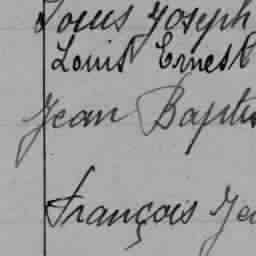 Louis Joseph
Louis Ernest
Jean Baptis
François Je